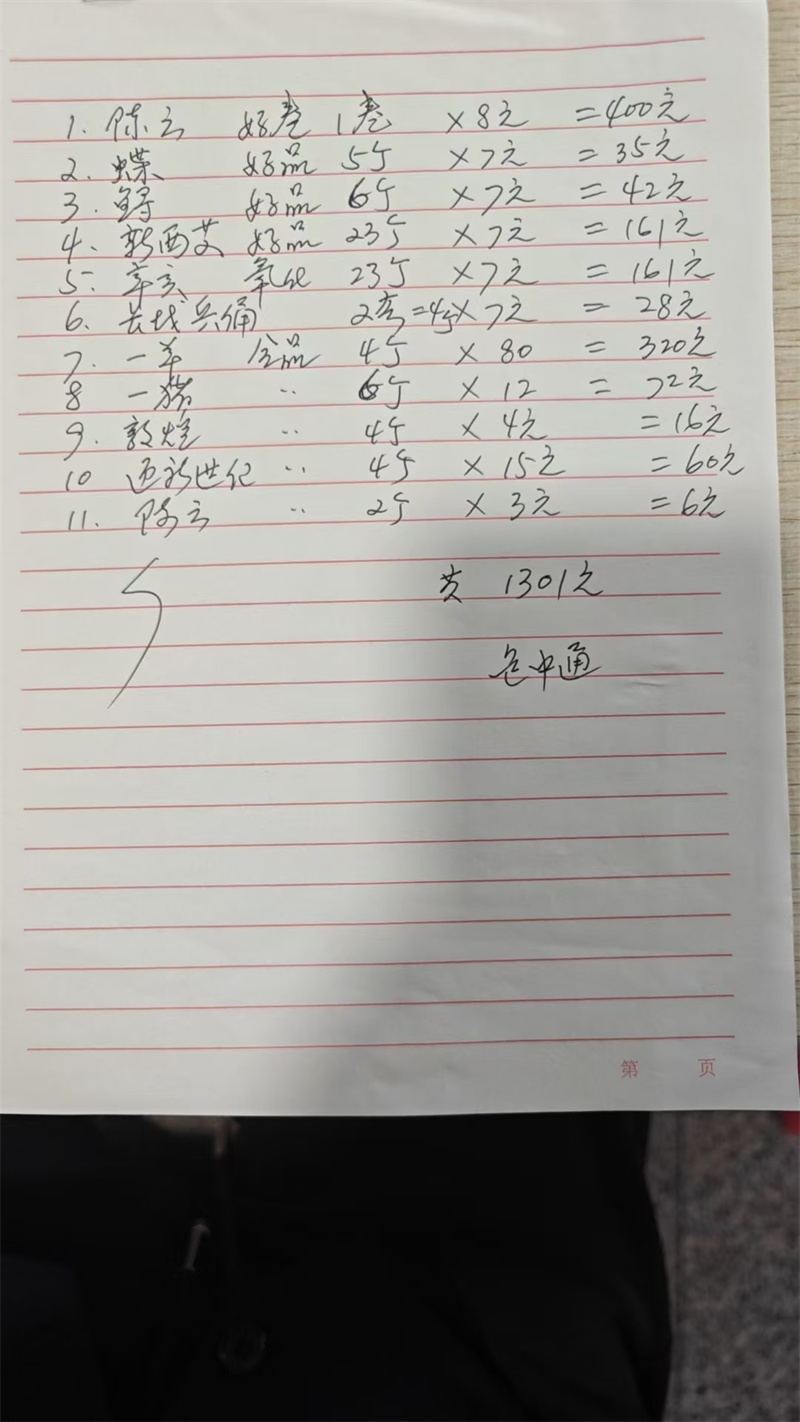 1. 陈云 好卷 1卷 ×8元 =400元
2. 蝶 好品 5个 ×7元 =35元
3. 鲟 好品 6个 ×7元 =42元
4、新西艾 好品 23个 ×7元 =161元
5. 辛亥 氧化 23个 ×7元 =161元
6、长城兵俑 2套=4个×7元 =28元
7. 一羊 全品 4个 ×80 =320元
8 一猪 〃 6个 ×12 =72元
9. 敦煌 〃 4个 ×4元 =16元
10 迎新世纪 〃 4个 ×15元 =60元
11. 陈云 〃 2个 ×3元 =6元
共 1301元
包中通
第 页